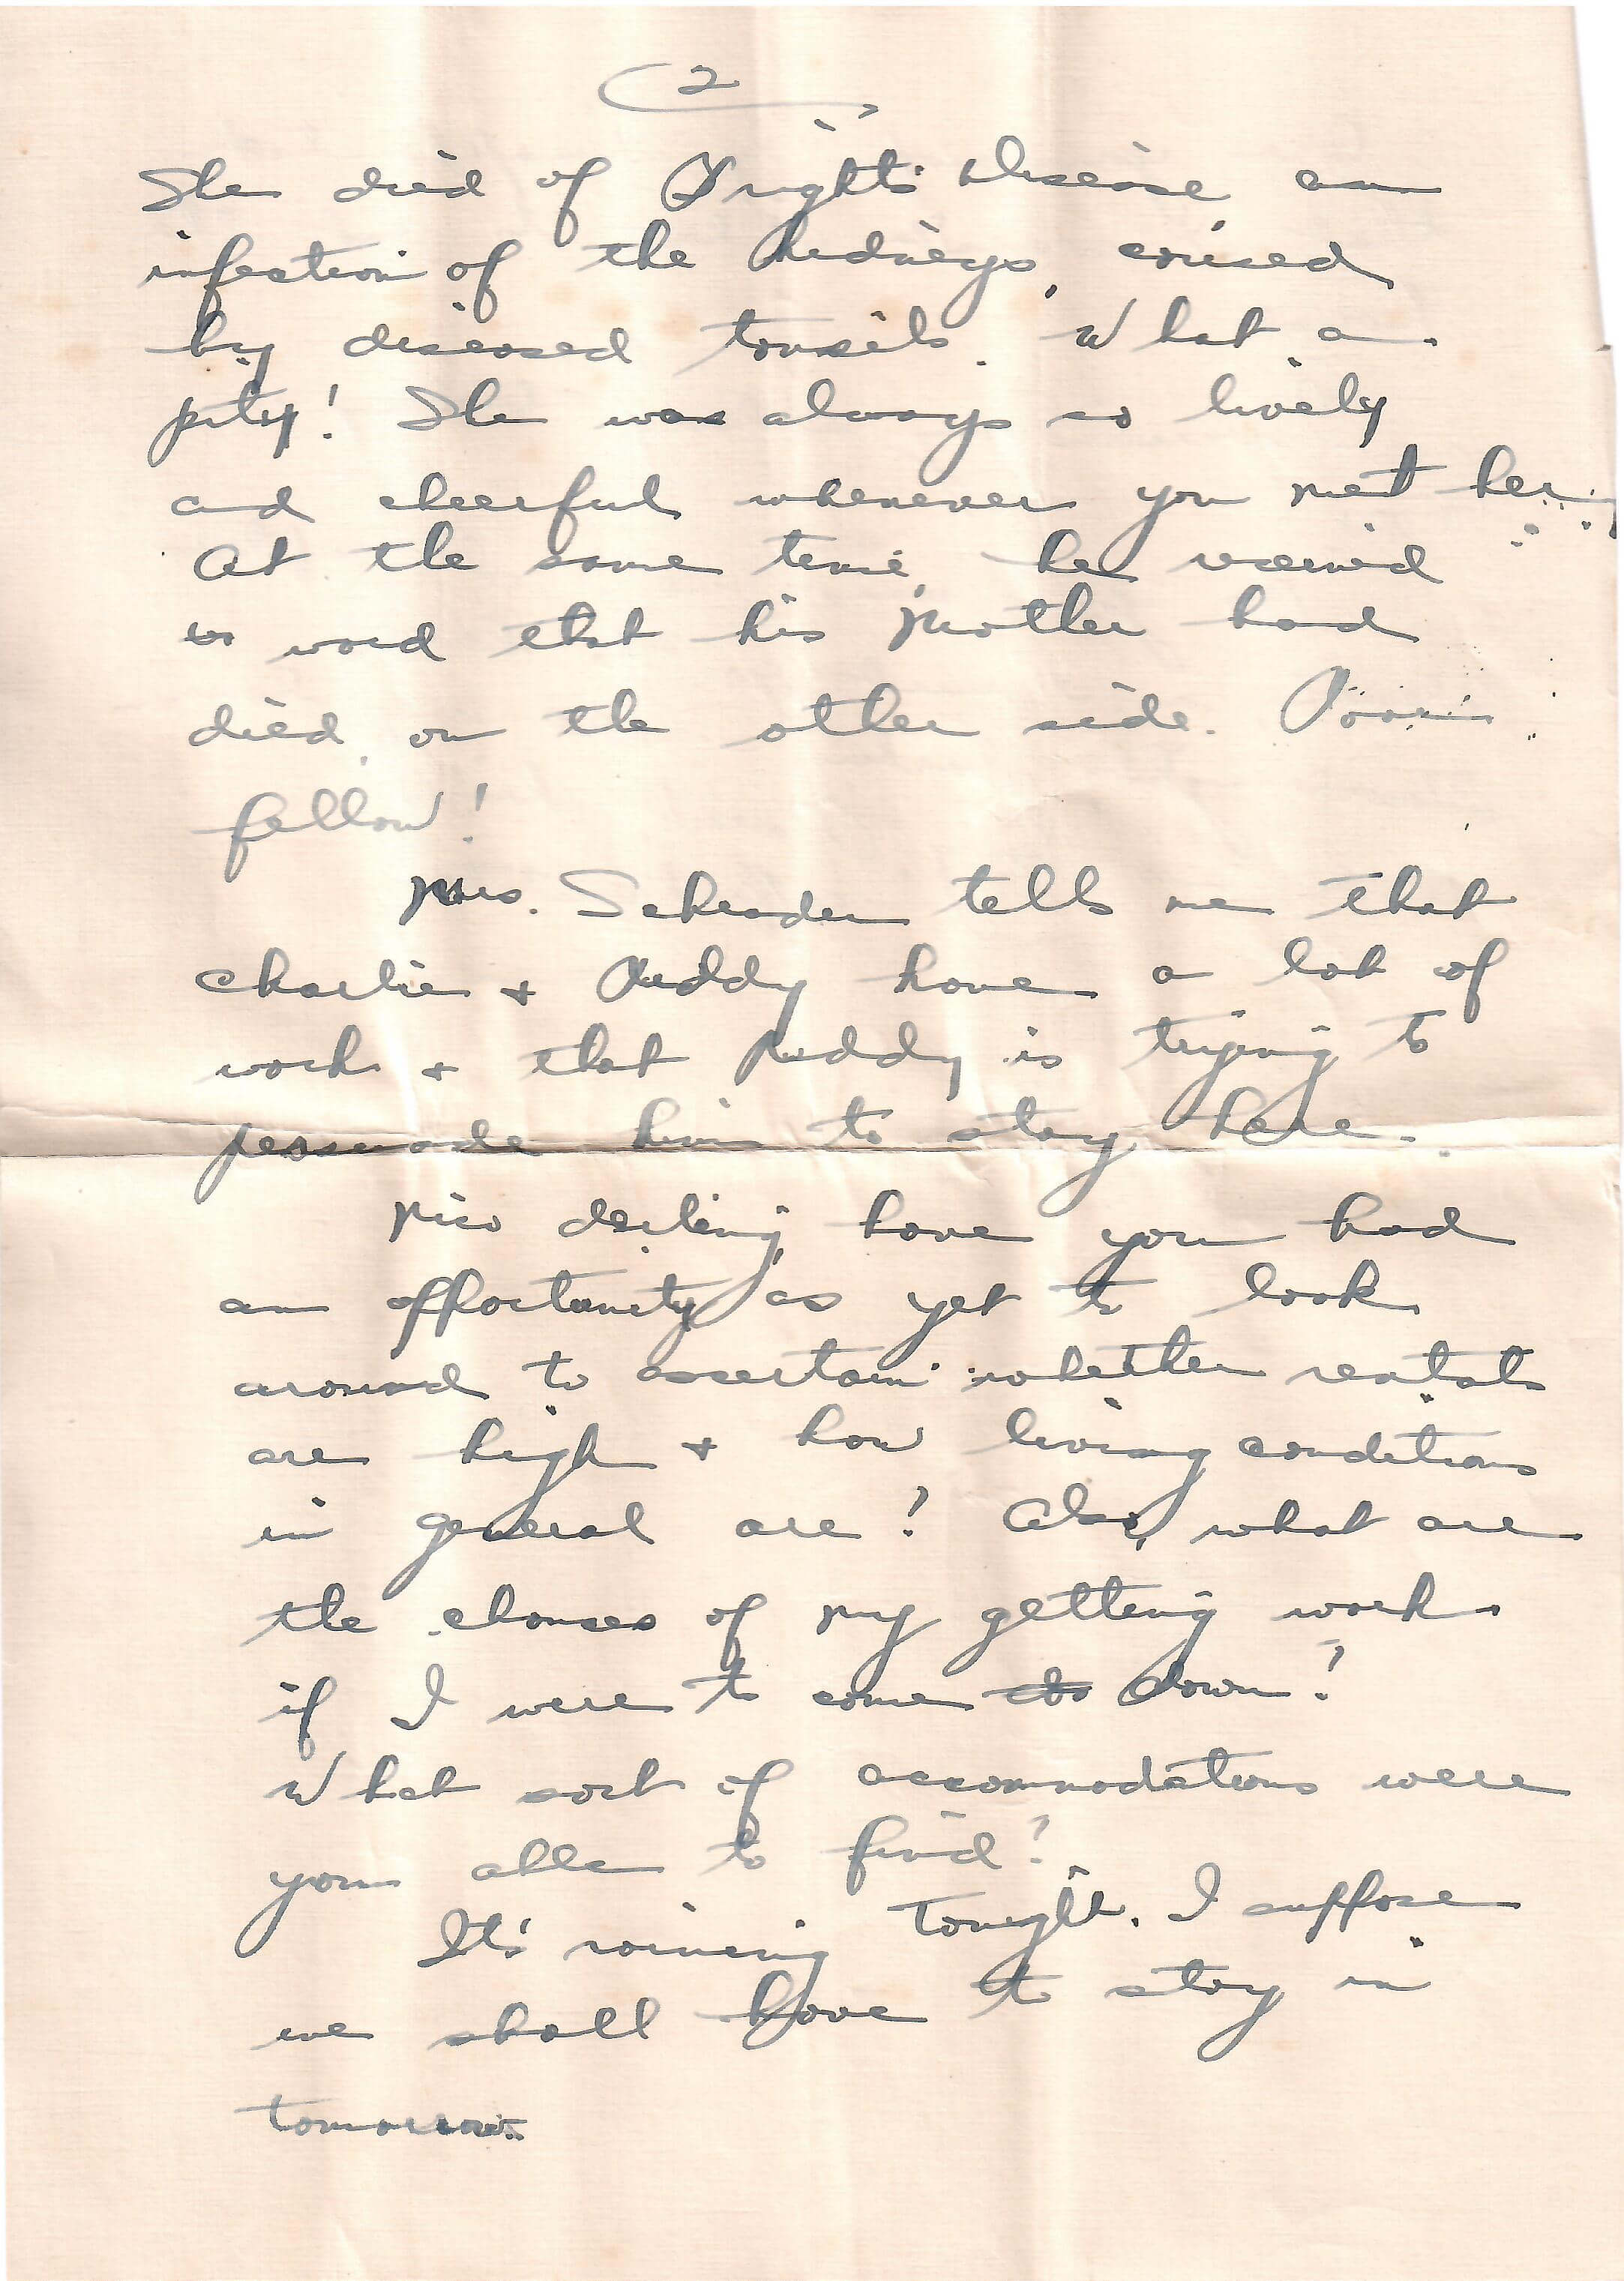 2
She died of Bright's disease an
infection of the kidneys, caused
by diseased tonsils. What a
pity! She was always so lively
and cheerful whenever you met her.
At the same time, he received
word that his mother had
died on the other side. Poor
fellow!
Mrs. Schrader tells me that
Charlie + Buddy have a lot of
work + that Buddy is trying to
persuade him to stay here.
darling, have you had
an opportunity as yet to look
around to ascertain whether rentals
are high + how living conditions
in general are? Also, what are
the chances of my getting work
if I were to come down?
What sort of accommodations were
you able to find?
It's raining tonight. I suppose
we shall have to stay in
tomorrow.